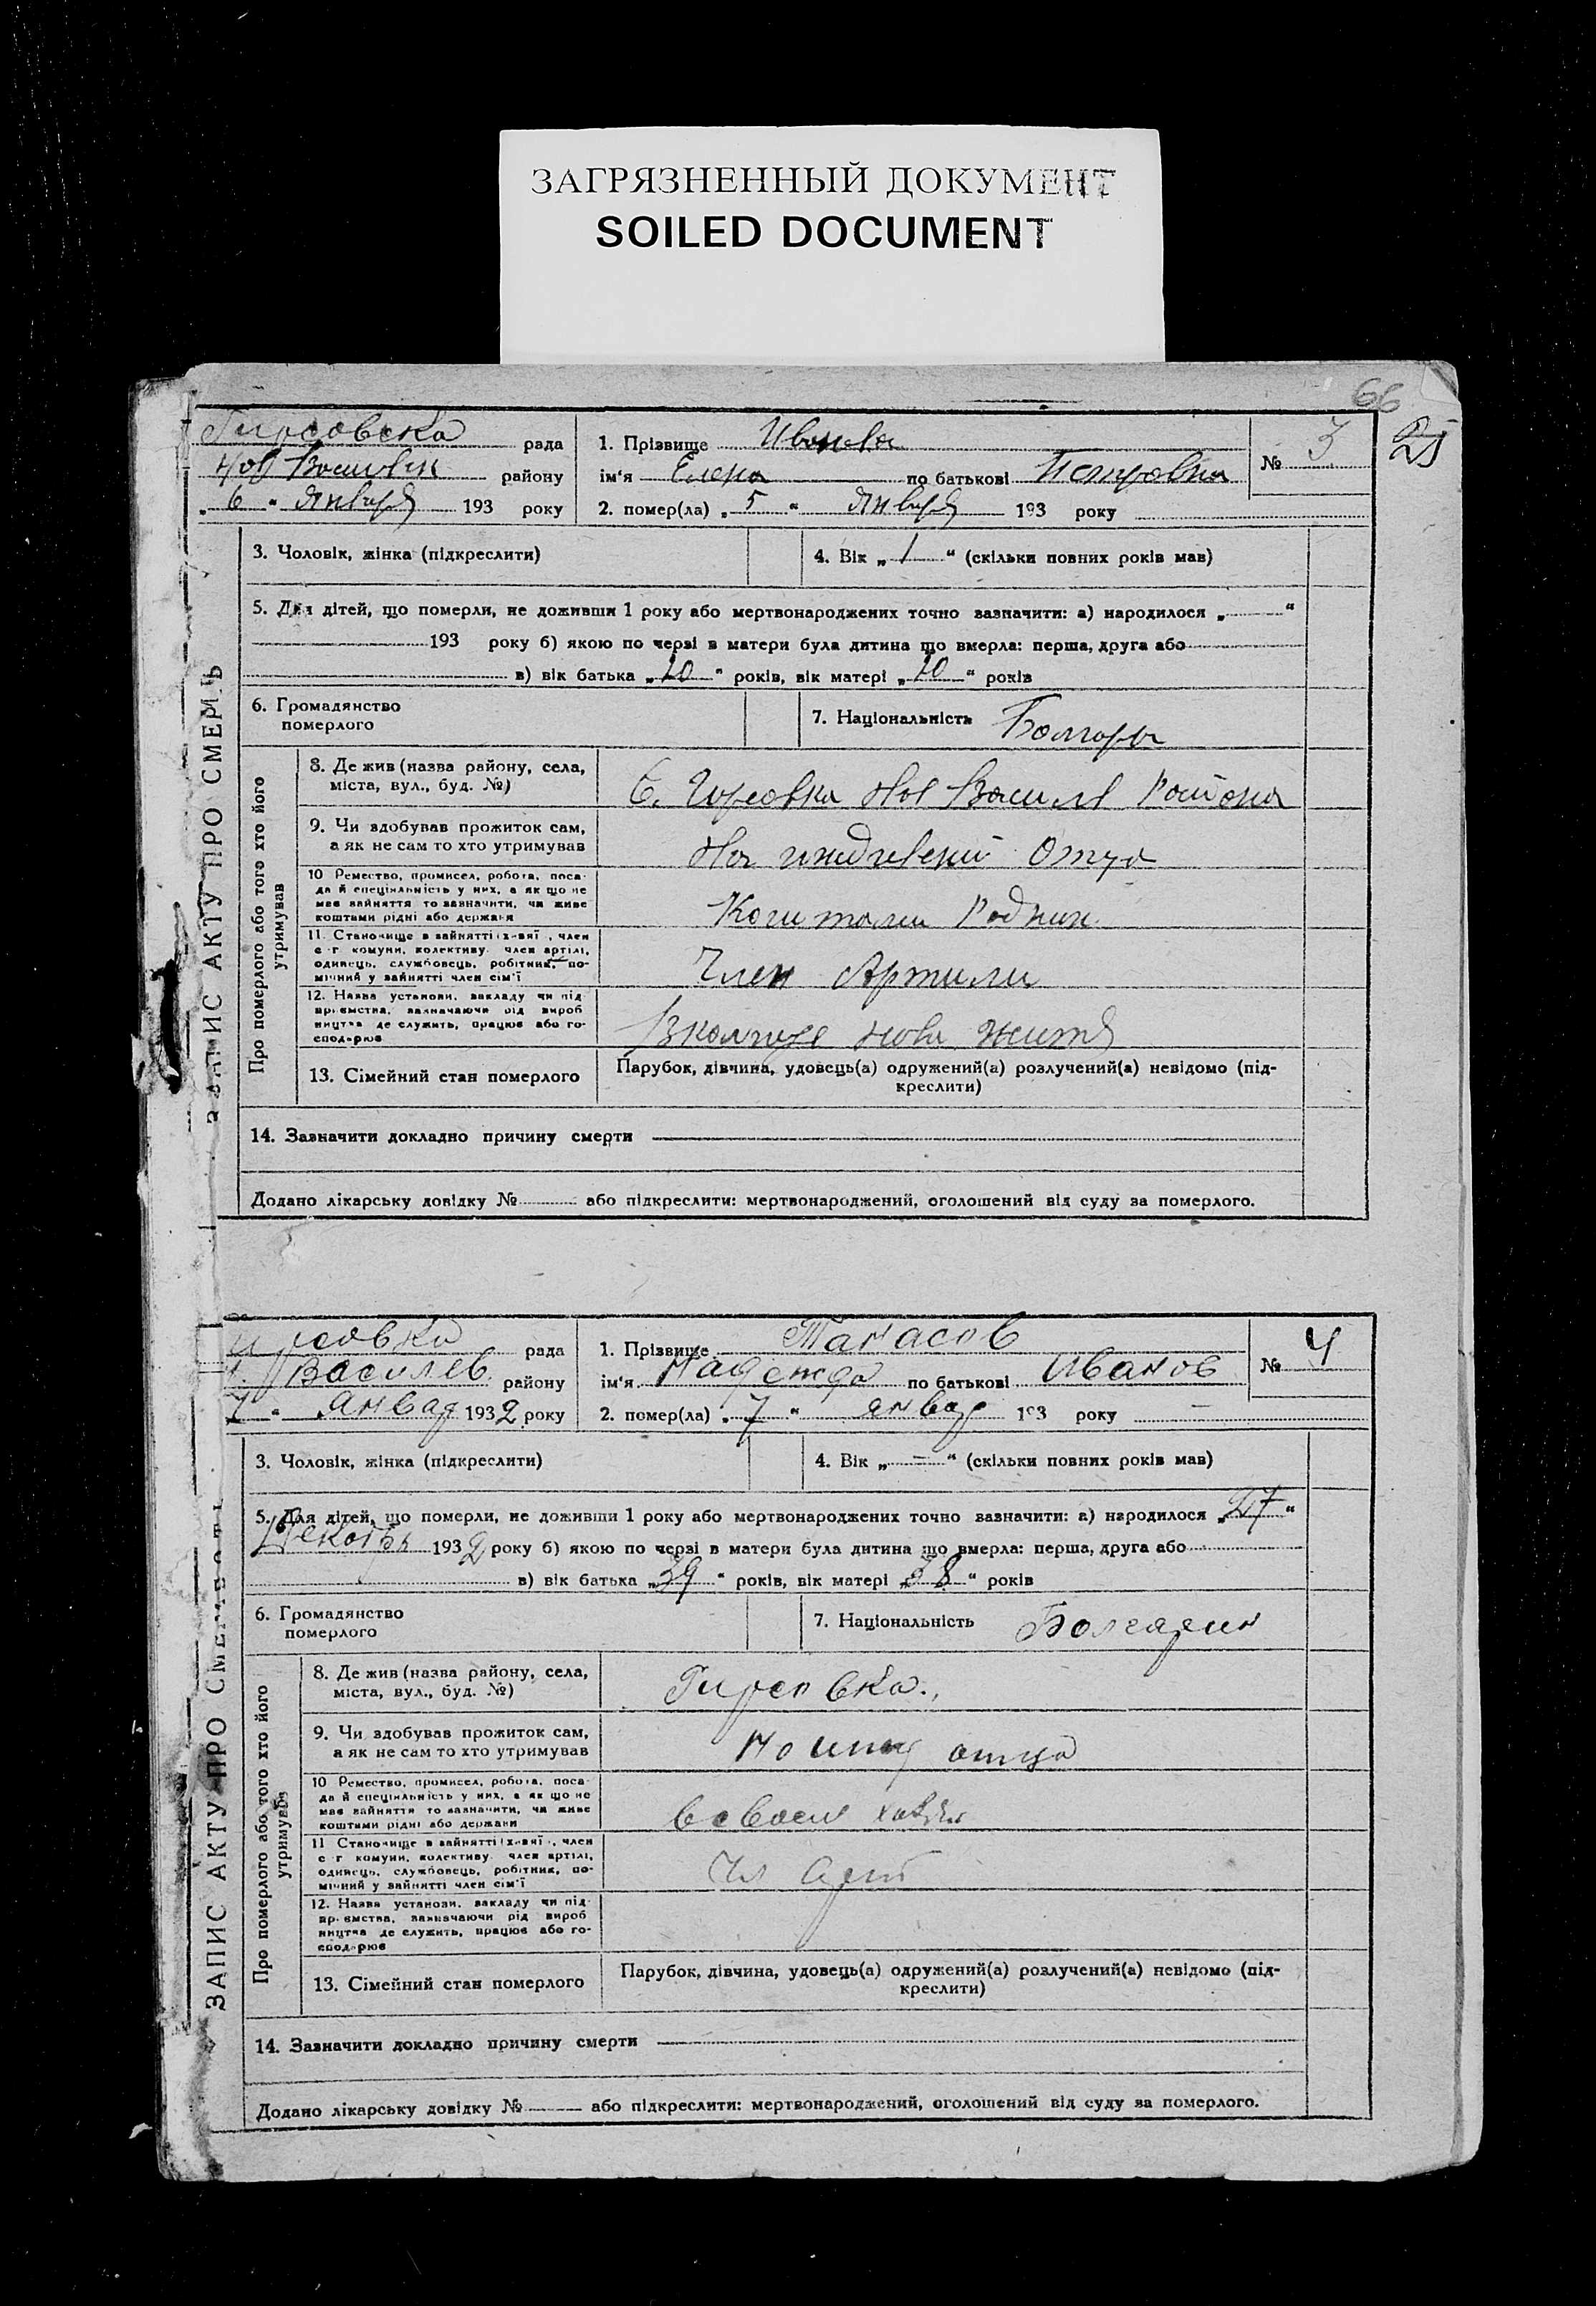 ЗАГРЯЗНЕННЫЙ ДОКУМЕНТ
SOILED DOCUMENT
66
21
ЗАПИС АКТУ ПРО СМЕРТЬ
Гирсовска рада
Нов Василвск району
„ 6 “ Января 193 року
1. Прізвище Иванова
ім‘я Елена по батькові Петровна
2. помер(ла) „ 5 “ Января 193 року
№ 3
3. Чоловік, жінка (підкреслити)
4. Вік „ 1 “ (скільки повних років мав)
5. Для дітей, що померли, не доживши 1 року або мертвонароджених точно зазначити: а) народилося „ “
193 року б) якою по черзі в матери була дитина що вмерла: перша, друга або
в) вік батька „20“ років, вік матері „20“ років
6. Громадянство померлого
7. Національність Болгары
Про померлого або того хто його утримував
8. Де жив (назва району, села,
міста, вул., буд. №)
С. Гирсовка Нов Василв Района
9. Чи здобував прожиток сам,
а як не сам то хто утримував
На иждивении Отца
10 Ремество, промисел, робота, поса-
да й спеціяльність у них, а як що не
має зайняття то зазначити, чи живе
коштами рідні або держави
Родних
11. Становище в зайнятті (хазяї), член
с-г комуни, колективу член артілі,
одинець, службовець, робітник, по-
мічний у зайнятті член сім‘ї
Член Артили
12. Назва установи, закладу чи під-
приємства, зазначаючи рід вироб-
ництва де служить, працює або го-
сподарює
Вколхозе нова житя
13. Сімейний стан померлого
Парубок, дівчина, удовець(а) одружений(а) розлучений(а) невідомо (під-
креслити)
14. Зазначити докладно причину смерти
Додано лікарську довідку № або підкреслити: мертвонароджений, оголошений від суду за померлого.
ЗАПИС АКТУ ПРО СМЕРТЬ
ирсовка рада
Василев району
7 “ Январ 1932 року
1. Прізвище Танасов
ім‘я Надежда по батькові Иванов
2. помер(ла) „ 7 “ январ 193 року
№ 4
3. Чоловік, жінка (підкреслити)
4. Вік „ – “ (скільки повних років мав)
5. Для дітей, що померли, не доживши 1 року або мертвонароджених точно зазначити: а) народилося „27“
Декабрь 1932 року б) якою по черзі в матери була дитина що вмерла: перша, друга або
в) вік батька „39“ років, вік матері „38“ років
6. Громадянство померлого
7. Національність Болгарин
Про померлого або того хто його утримував
8. Де жив (назва району, села,
міста, вул., буд. №)
Гирсовка
9. Чи здобував прожиток сам,
а як не сам то хто утримував
отца
10 Ремество, промисел, робота, поса-
да й спеціяльність у них, а як що не
має зайняття то зазначити, чи живе
коштами рідні або держави
11 Становище в зайнятті (хазяї), член
с-г комуни, колективу член артілі,
одинець, службовець, робітник, по-
мічний у зайнятті член сім‘ї
Чл Арт
12. Назва установи, закладу чи під-
приємства, зазначаючи рід вироб-
ництва де служить, працює або го-
сподарює
13. Сімейний стан померлого
Парубок, дівчина, удовець(а) одружений(а) розлучений(а) невідомо (під-
креслити)
14. Зазначити докладно причину смерти
Додано лікарську довідку № або підкреслити: мертвонароджений, оголошений від суду за померлого.